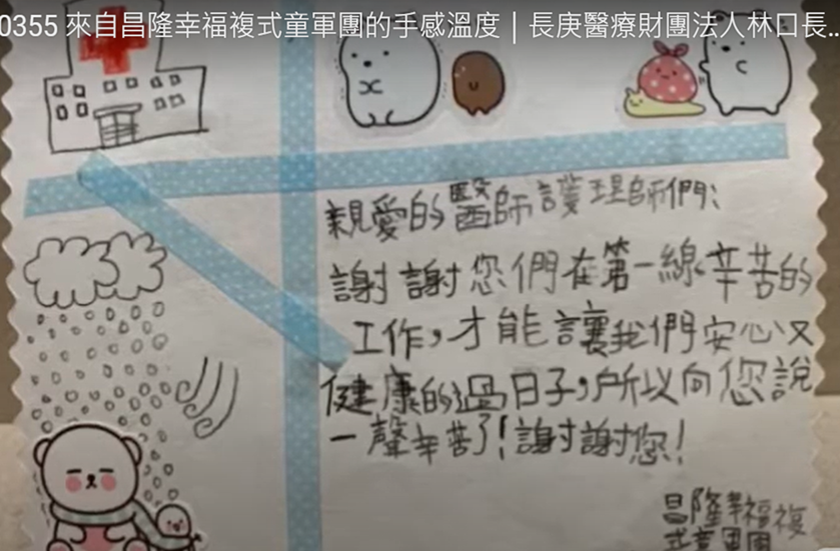 0355 來自昌隆幸福複式童軍團的手感溫度｜長庚醫療財團法人林口長…
親愛的醫師護理師們：
謝謝您們在第一線辛苦的
工作，才能讓我們安心又
健康的過日子，所以向您說
一聲辛苦了！謝謝您！
昌隆幸福複
式童軍團